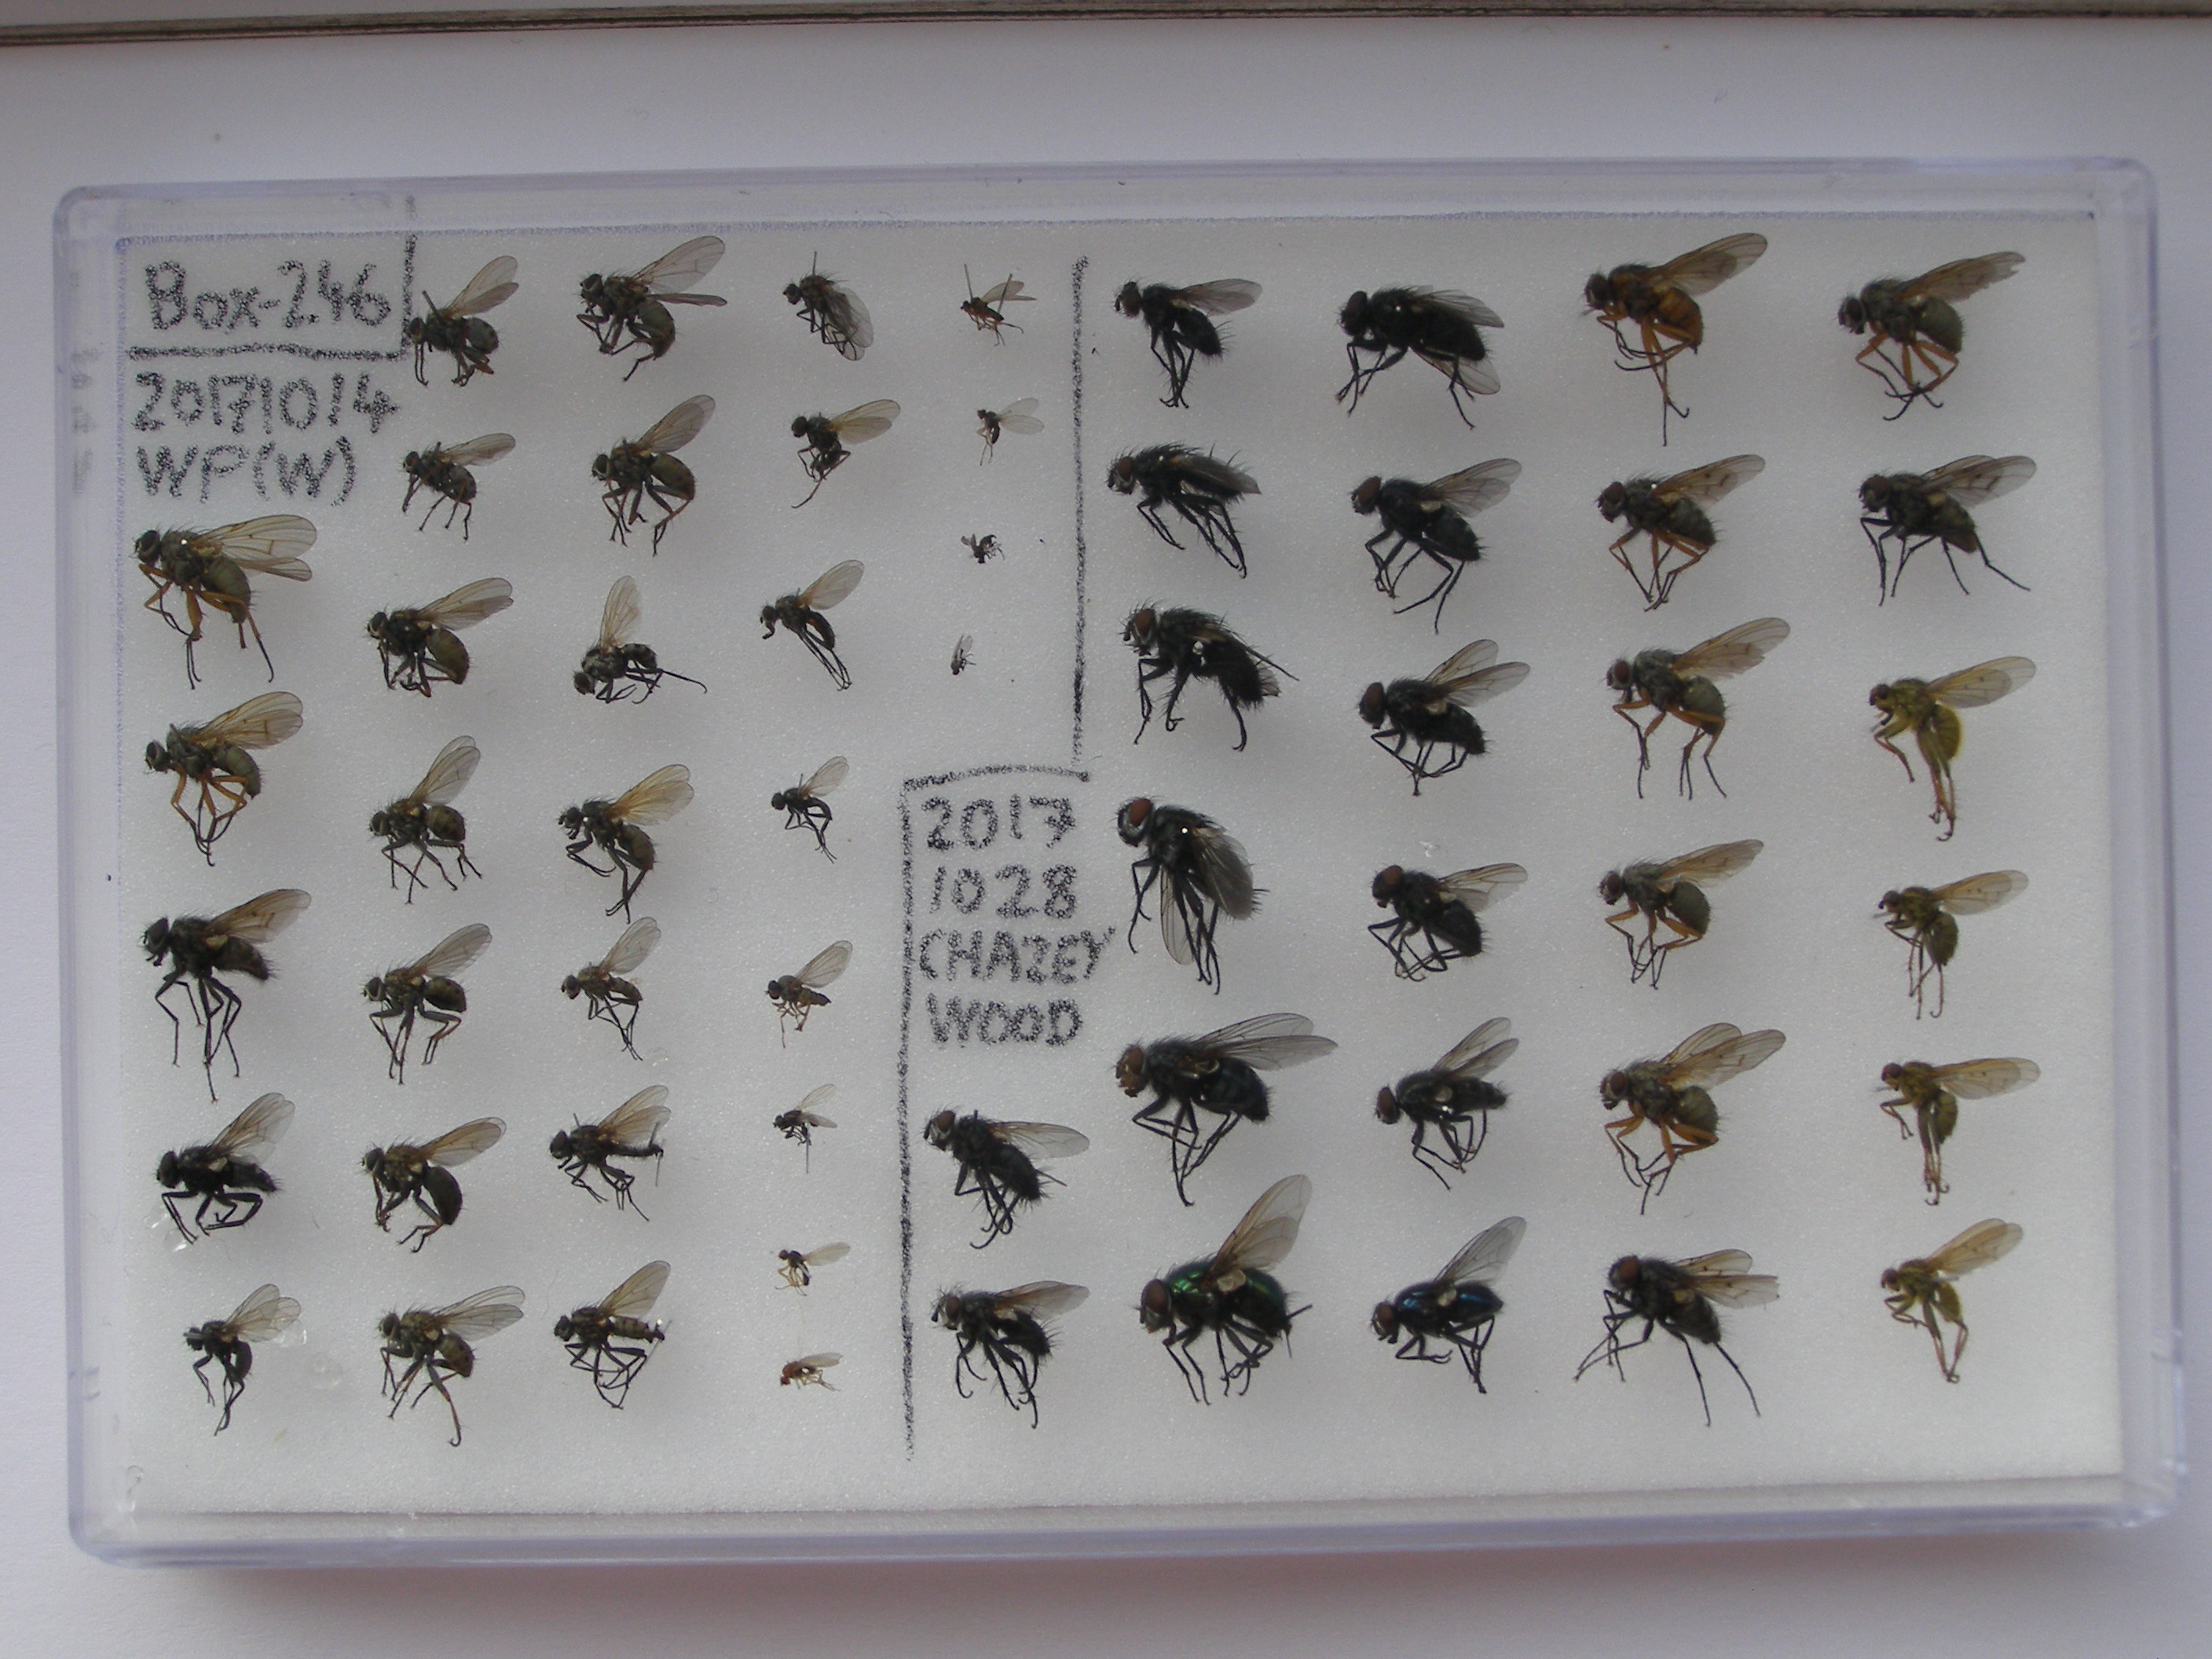 Box-246
20171014
WP(W)
2017
1028
CHAZEY
WOOD